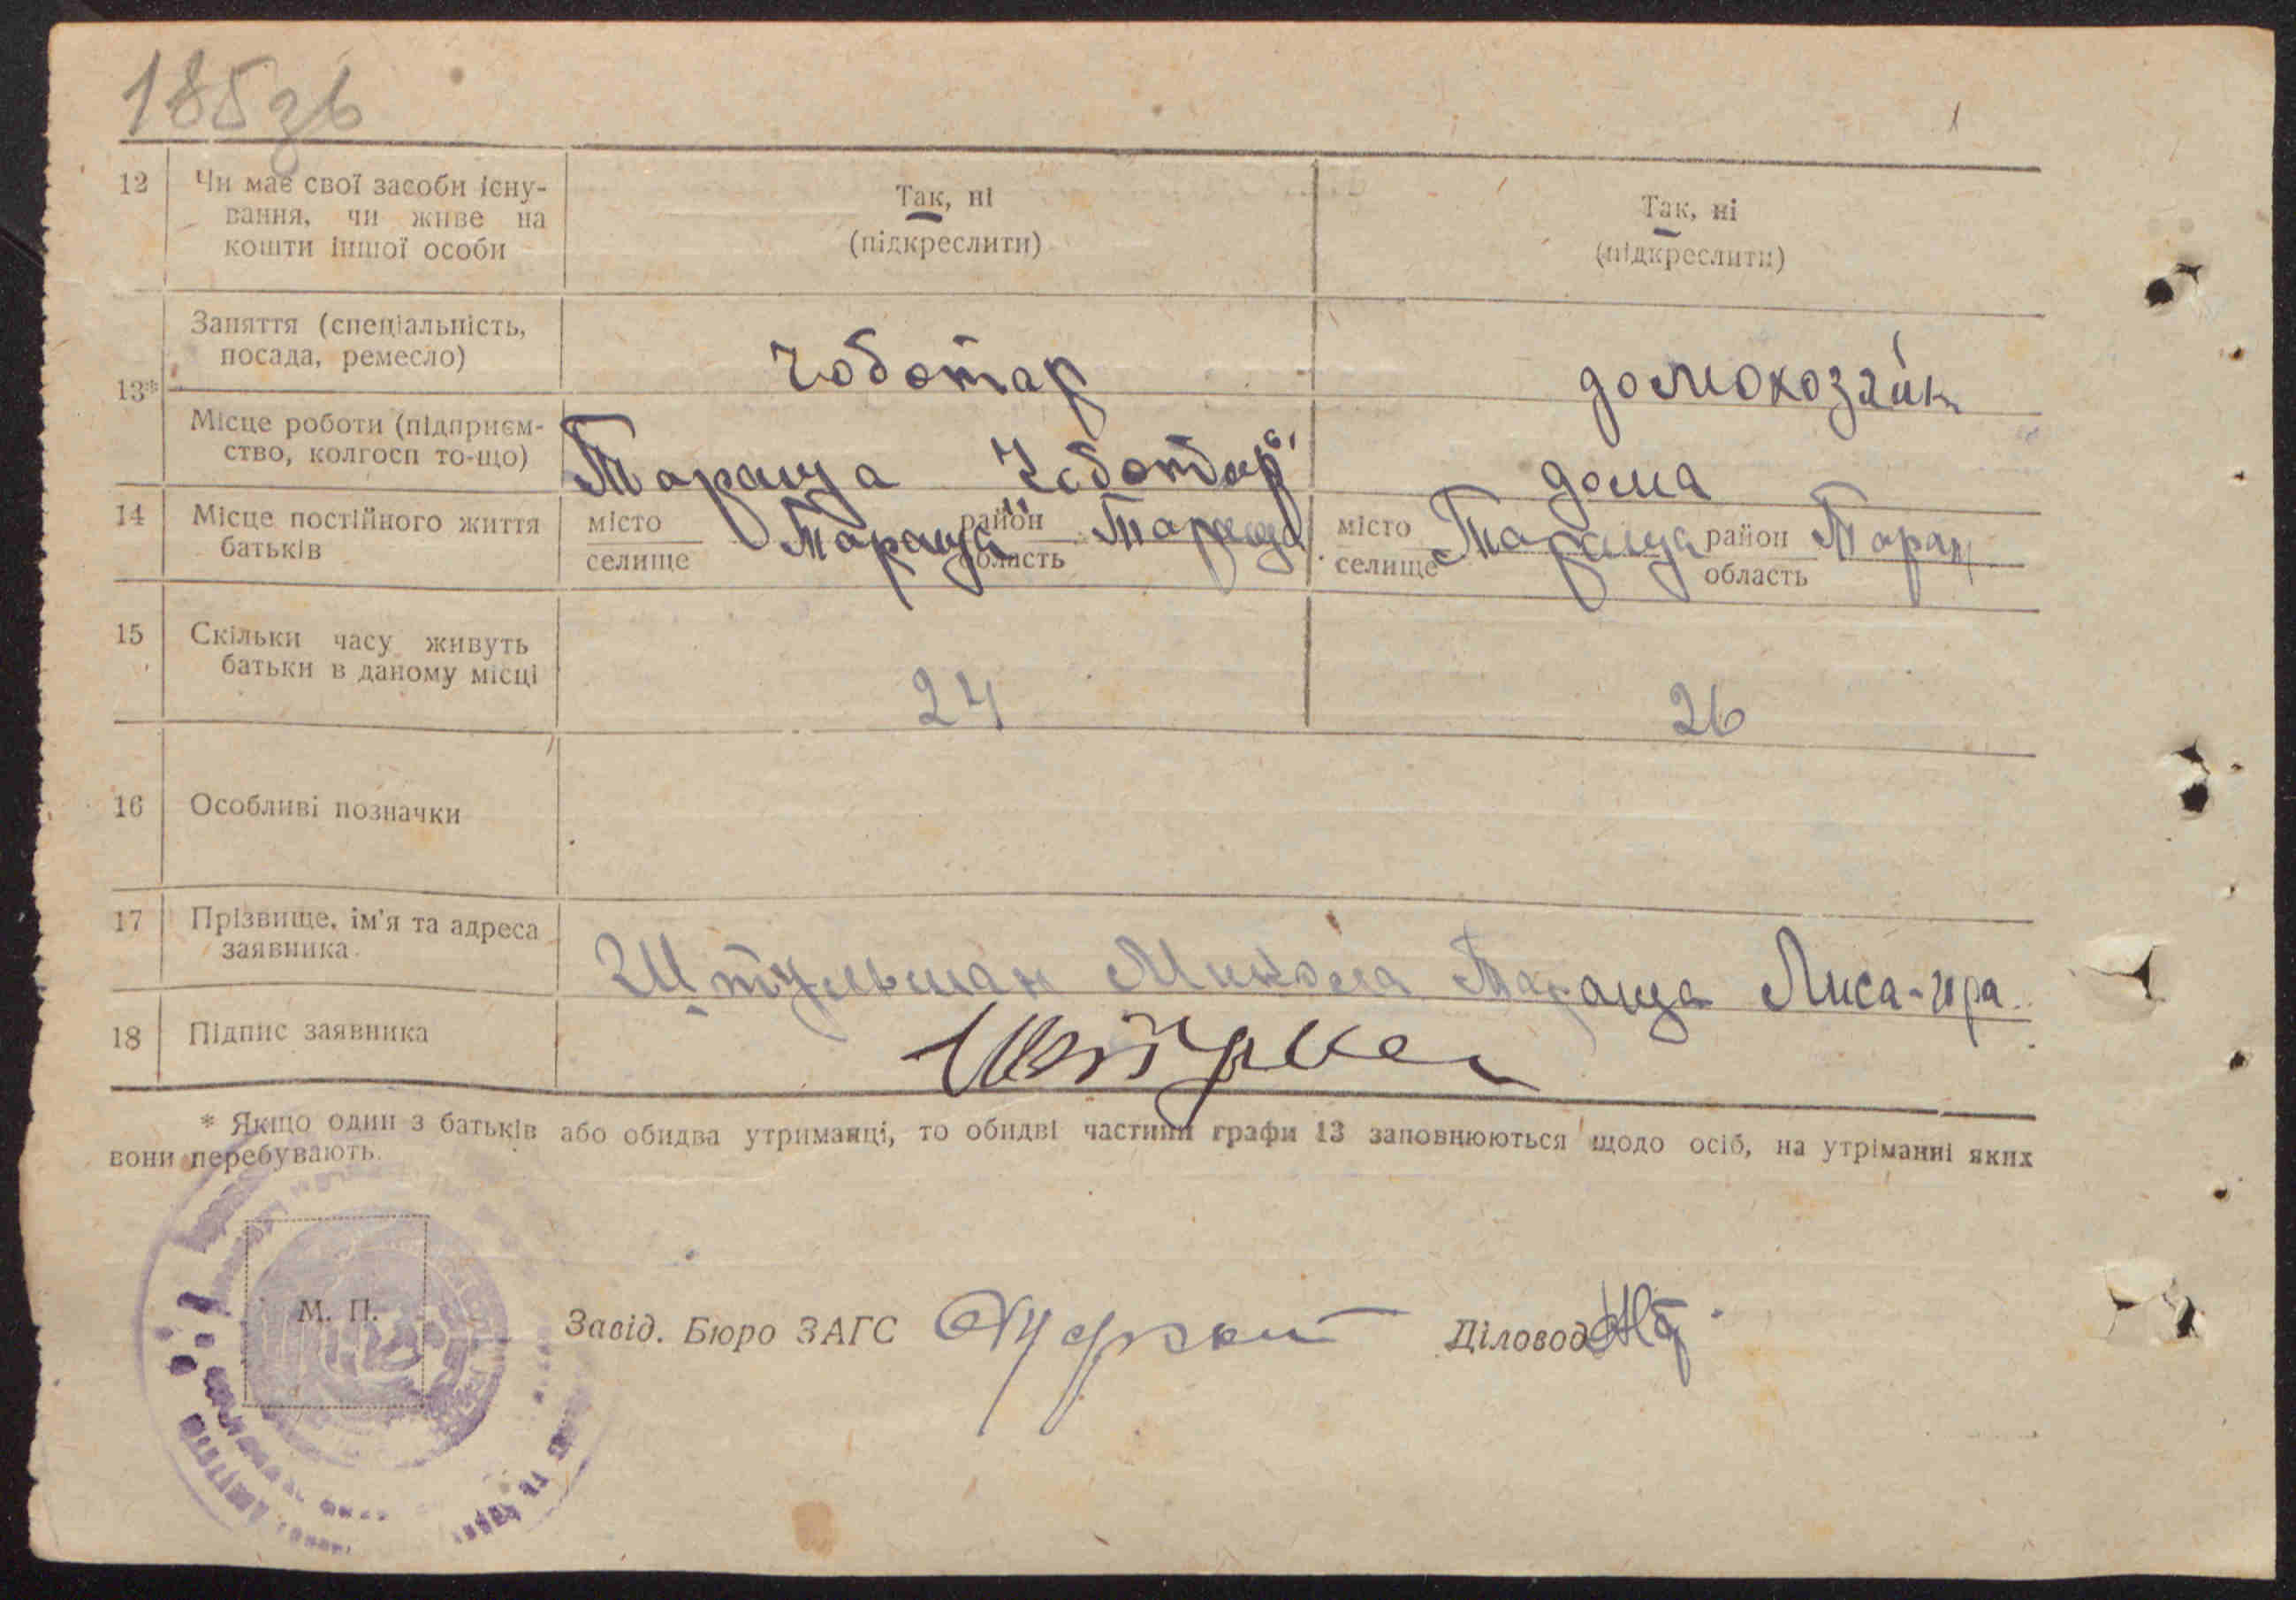 185зв
12 Чи має свої засоби існу-
вання, чи живе на
кошти іншої особи
Так, ні
(підкреслити)
Так, ні
(підкреслити)
13*
Заняття (спеціальність,
посада, ремесло)
Чоботар
домохозяйк
Місце роботи (підприєм-
ство, колгосп то-що)
Тараща "Чоботар"
дома
14 Місце постійного життя
батьків
місто
селище
Тараща
район
область
Тараща
місто
селище
Тараща
район
область
Таращ
15 Скільки часу живуть
батьки в даному місці
24
26
16 Особливі позначки
17 Прізвище, ім'я та адреса
заявника
Штульман Микола Тараща Лиса-гора
18 Підпис заявника
* Якщо один з батьків або обидва утриманці, то обидві частини графи 13 заповнюються щодо осіб, на утріманні яких
вони перебувають.
М. П.
Завід. Бюро ЗАГС
Діловод